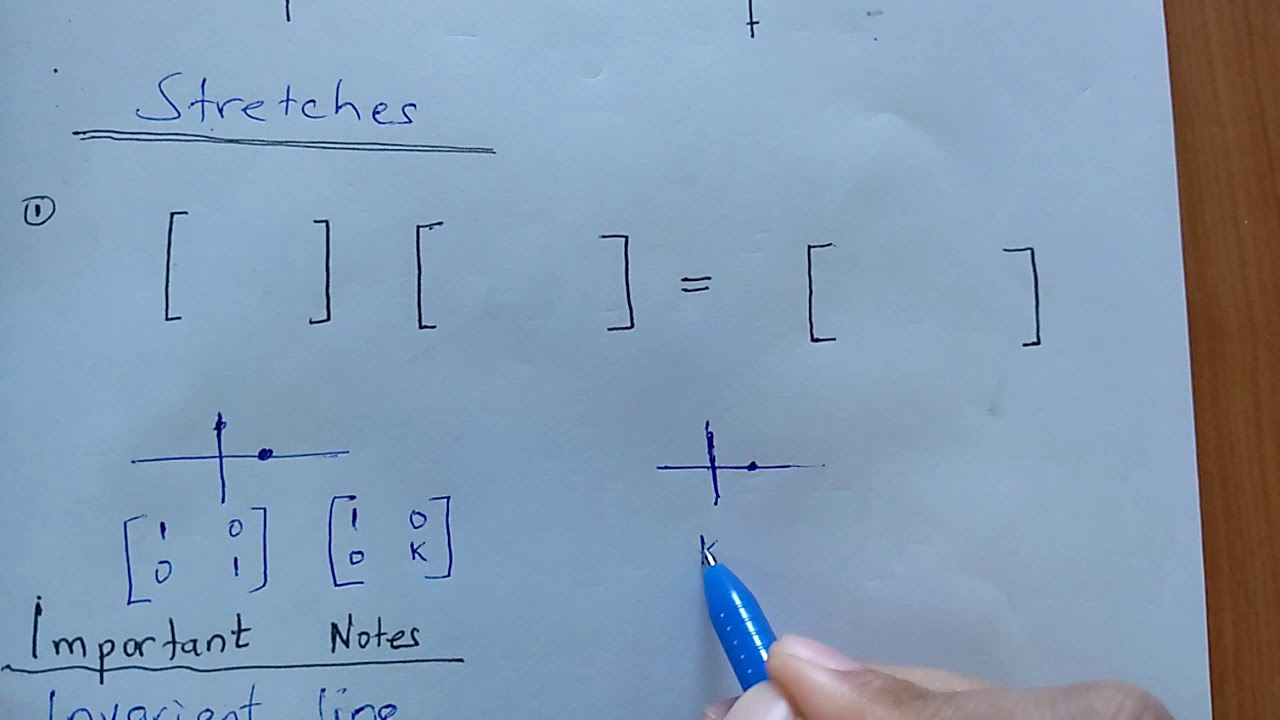 Stretches
① [ ] [ ] = [ ]
[1 0 [1 0
0 1] 0 K]
K
Important Notes
Invarient line